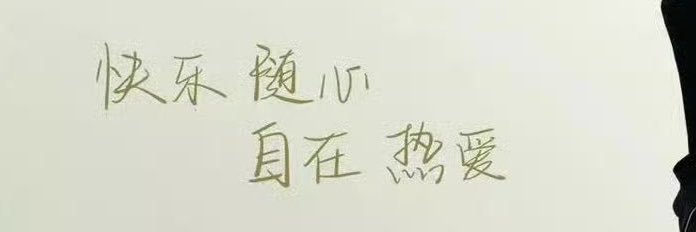 快乐 随心
自在 热爱